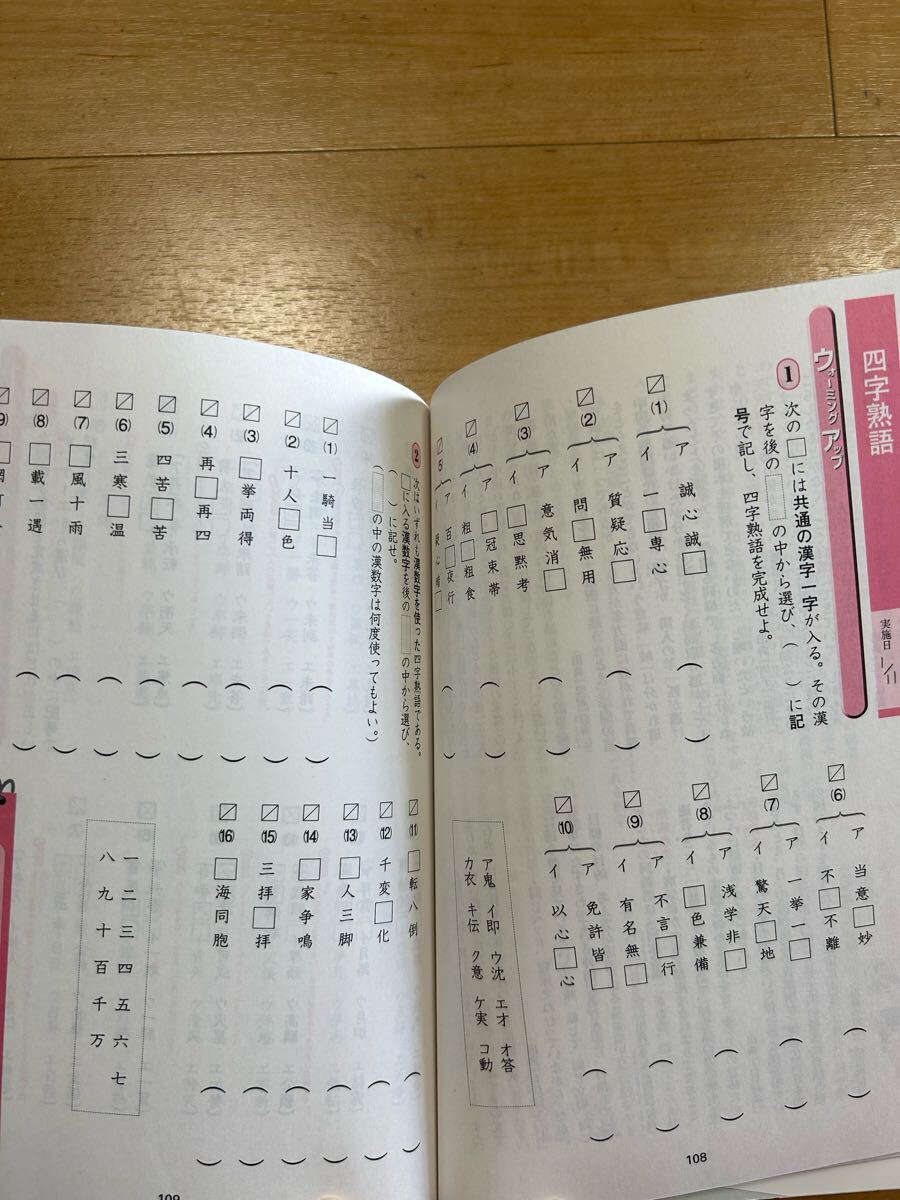 四字熟語
実施日
1/11
ウォーミングアップ
1
次の□には共通の漢字一字が入る。その漢
字を後の の中から選び、( )に記
号で記し、四字熟語を完成せよ。
(1)
ア 誠心誠□
イ 一□専心
(2)
ア 質疑応□
イ 問□無用
(3)
ア 意気消□
イ □思黙考
(4)
ア □冠束帯
イ 粗□粗食
ア 百□夜行
イ 心 □
(6)
ア 当意□妙
イ 不□不離
(7)
ア 一挙一□
イ 驚天□地
(8)
ア 浅学非□
イ □色兼備
(9)
ア 不言□行
イ 有名無□
(10)
ア 免許皆□
イ 以心□心
ア鬼 イ即 ウ沈 エ才 オ答
カ衣 キ伝 ク意 ケ実 コ動
108
2
次はいずれも漢数字を使った四字熟語である。
□に入る漢数字を後の の中から選び、
( )に記せ。
( の中の漢数字は何度使ってもよい。)
(1) 一騎当□
(2) 十人□色
(3) □挙両得
(4) 再□再四
(5) 四苦□苦
(6) 三寒□温
(7) □風十雨
(8) □載一遇
(11) □転八倒
(12) 千変□化
(13) □人三脚
(14) □家争鳴
(15) 三拝□拝
(16) □海同胞
一 二 三 四 五 六 七
八 九 十 百 千 万
109